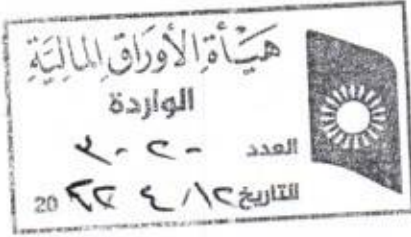 هيَـأة الأورَاق المَاليَة
الواردة
العدد
التاريخ ١٢/ ٤ 20